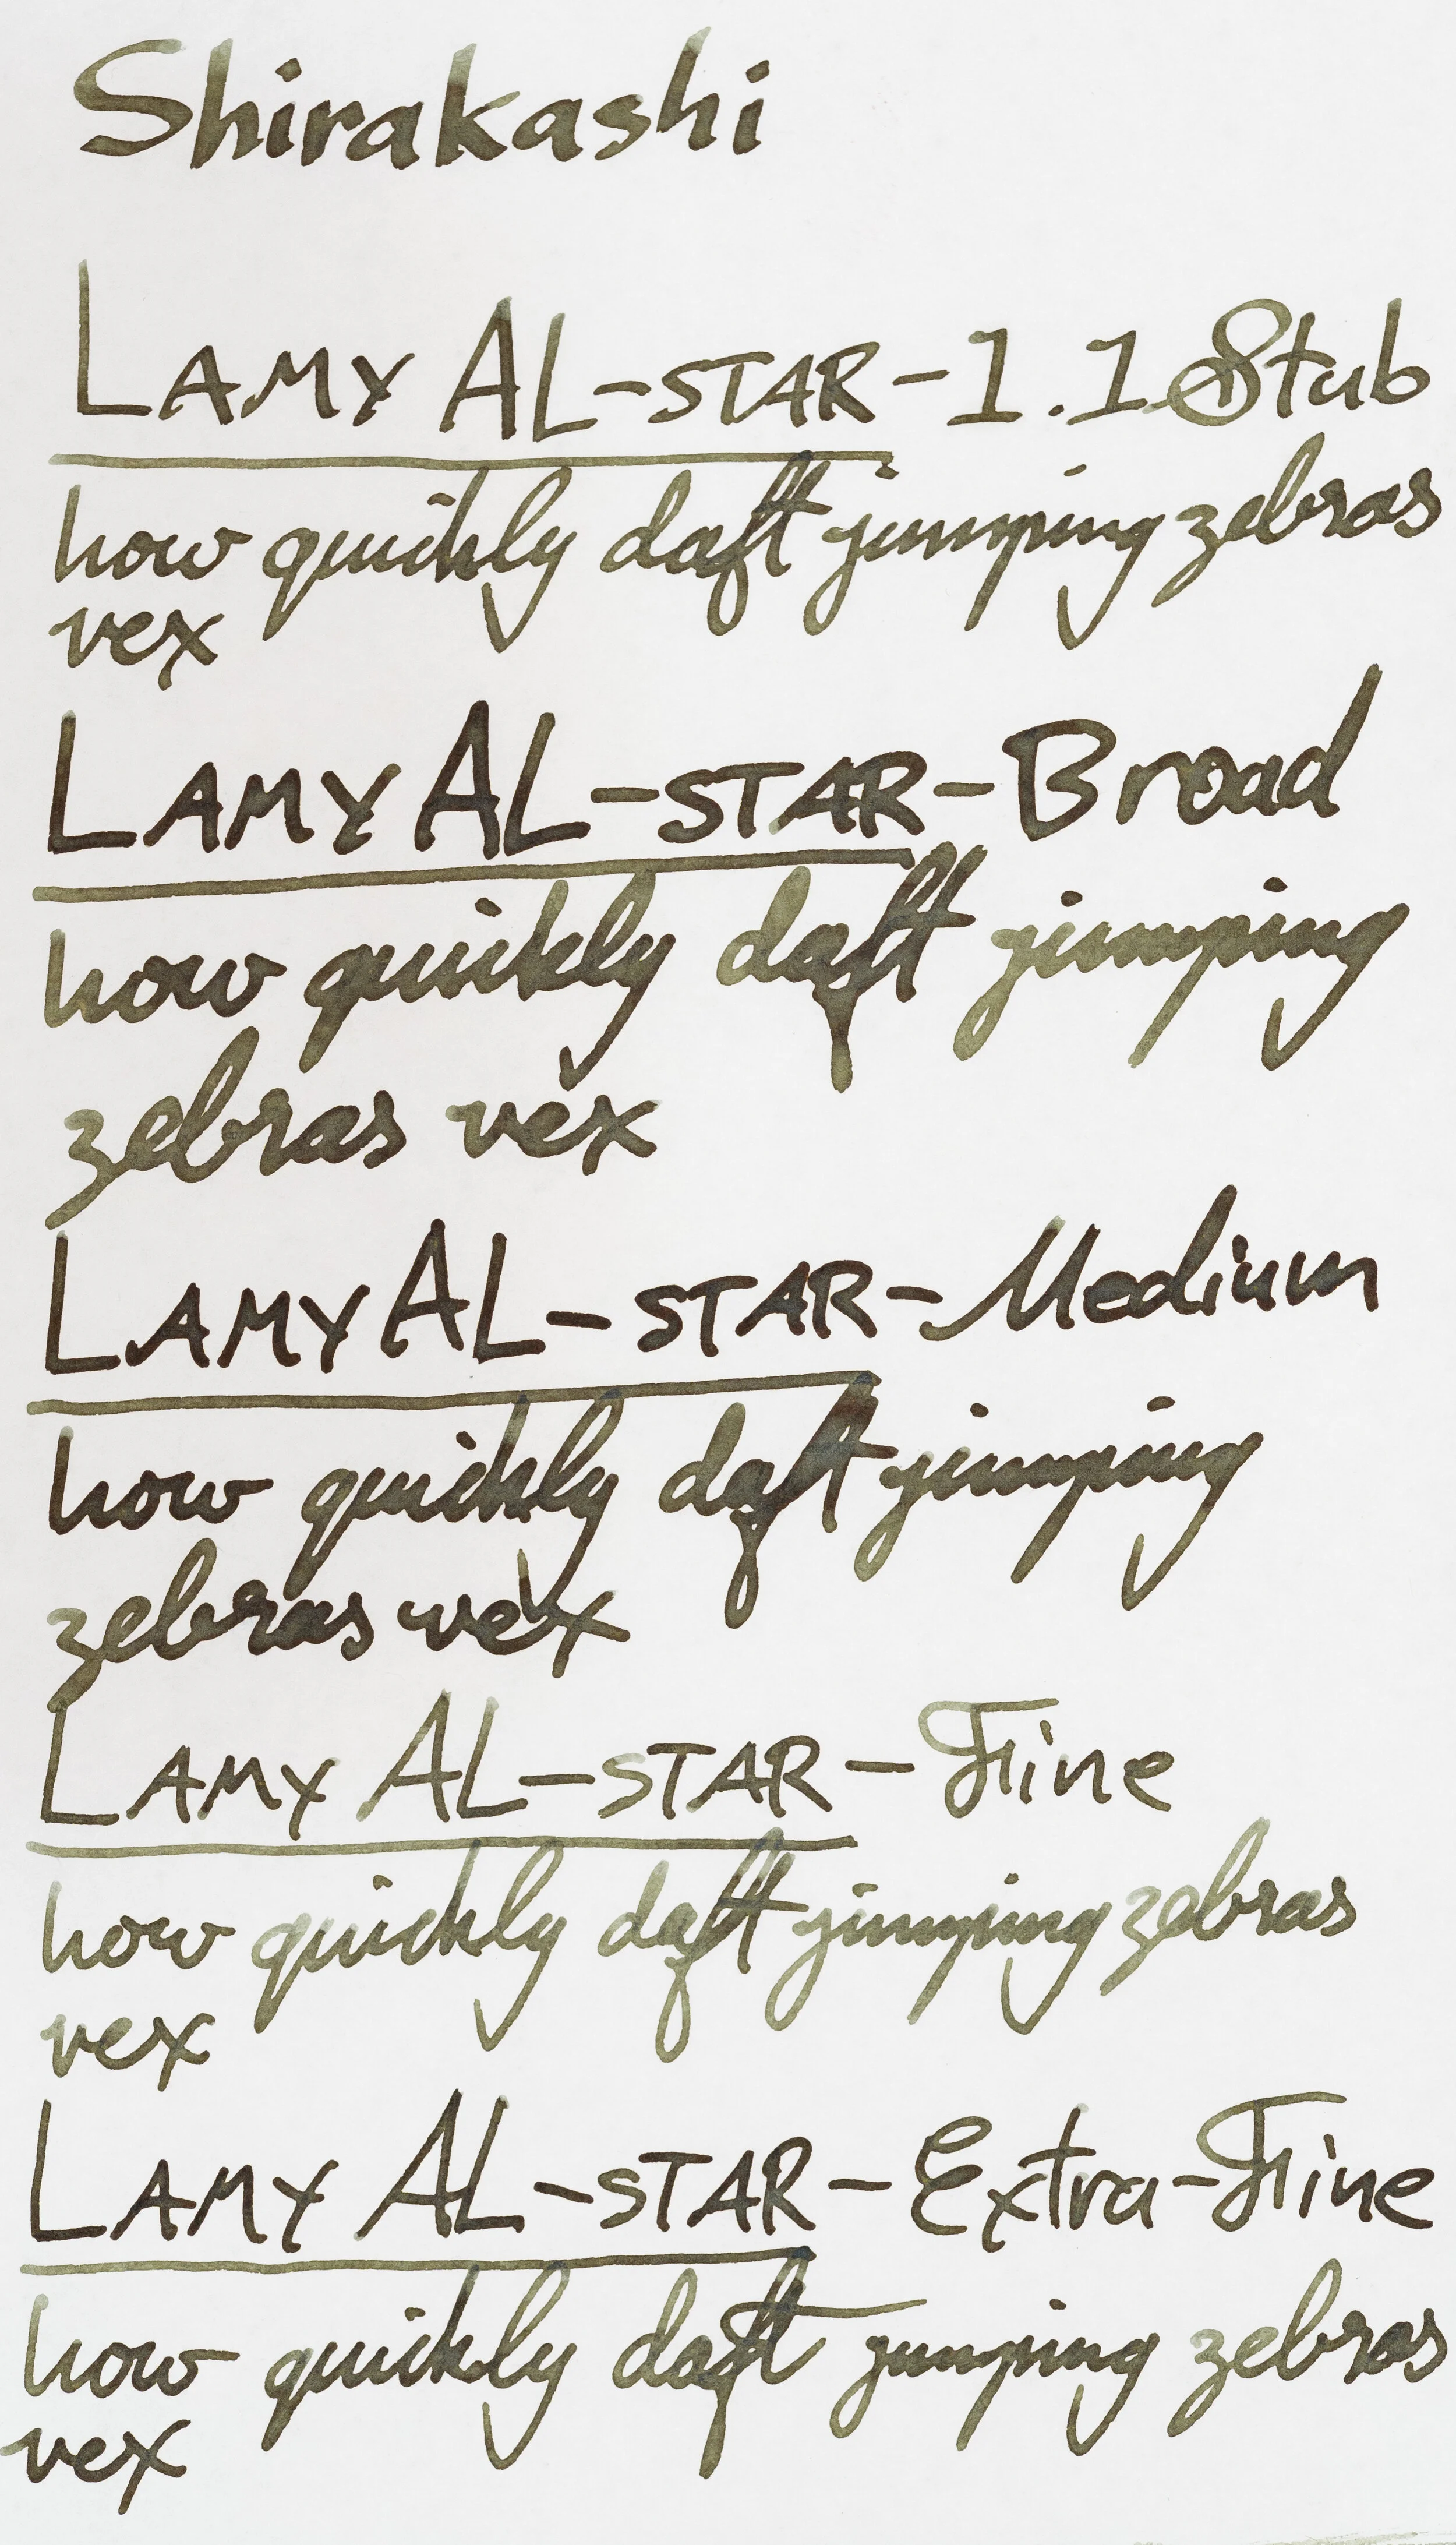 Shirakashi
LAMY AL-STAR-1.1 Stub
how quickly daft jumping zebras
vex
LAMY AL-STAR-Broad
how quickly daft jumping
zebras vex
LAMY AL-STAR-Medium
how quickly daft jumping
zebras vex
LAMY AL-STAR-Fine
how quickly daft jumping zebras
vex
LAMY AL-STAR-Extra-Fine
how quickly daft jumping zebras
vex